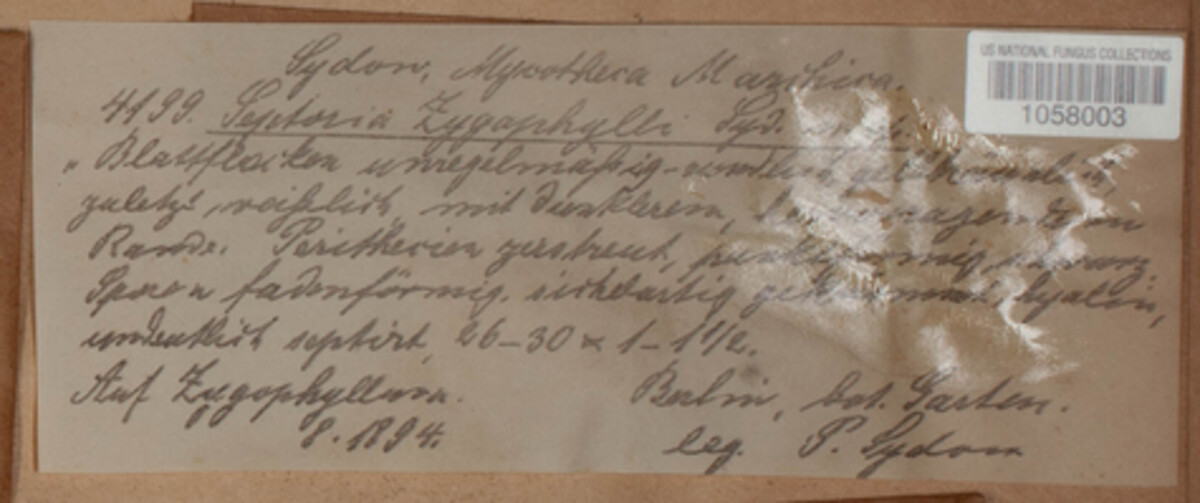 Sydow, Mycotheca Marchica.
US NATIONAL FUNGUS COLLECTIONS
1058003
4199. Septoria Zygophylli Syd.
„Blattflecken unregelmäßig-rundlich,
zuletzt weißlich, mit dunklerem,
Rande. Perithecien zerstreut, punktförmig, schwarz.
Sporen fadenförmig, sichelartig gekrümmt, hyalin,
undeutlich septirt, 26–30 × 1–1½.
Auf Zygophyllum.
Berlin, bot. Garten.
8. 1894.
leg. P. Sydow